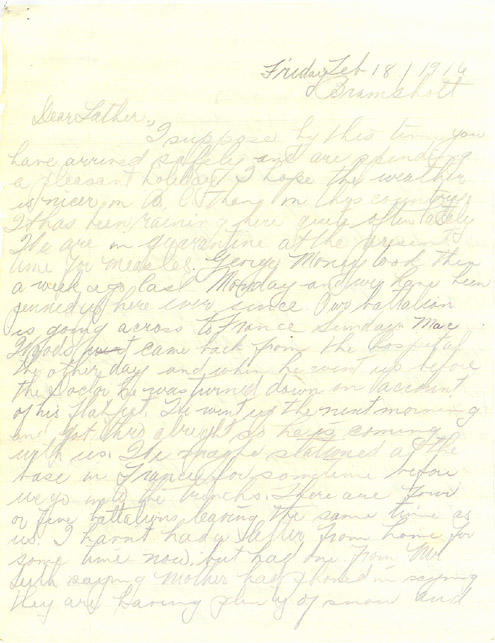 Friday Feb 18/1916
Bramshott
Dear Father,
I suppose by this time you
have arrived safely and are spending
a pleasant holiday I hope the weather
is nicer in than in this country
It has been raining here quite often lately
We are in quarantine at the present
time for measles. George Money took them
a week ago last Monday and we have been
penned up here ever since Our battalion
is going across to France Sunday. Mac
came back from the hospital
the other day and when he went up before
the Doctor he was turned down on account
of his flat feet. He went up the next morning
and got thro alright so he is coming
with us. We maybe stationed at the
base in France for sometime before
we go into the trenchs. There are four
or five battalions leaving the same time as
us. I havnt had a letter from home for
some time now, but had one from Mr
saying Mother had phoned in saying
they are having plenty of snow and